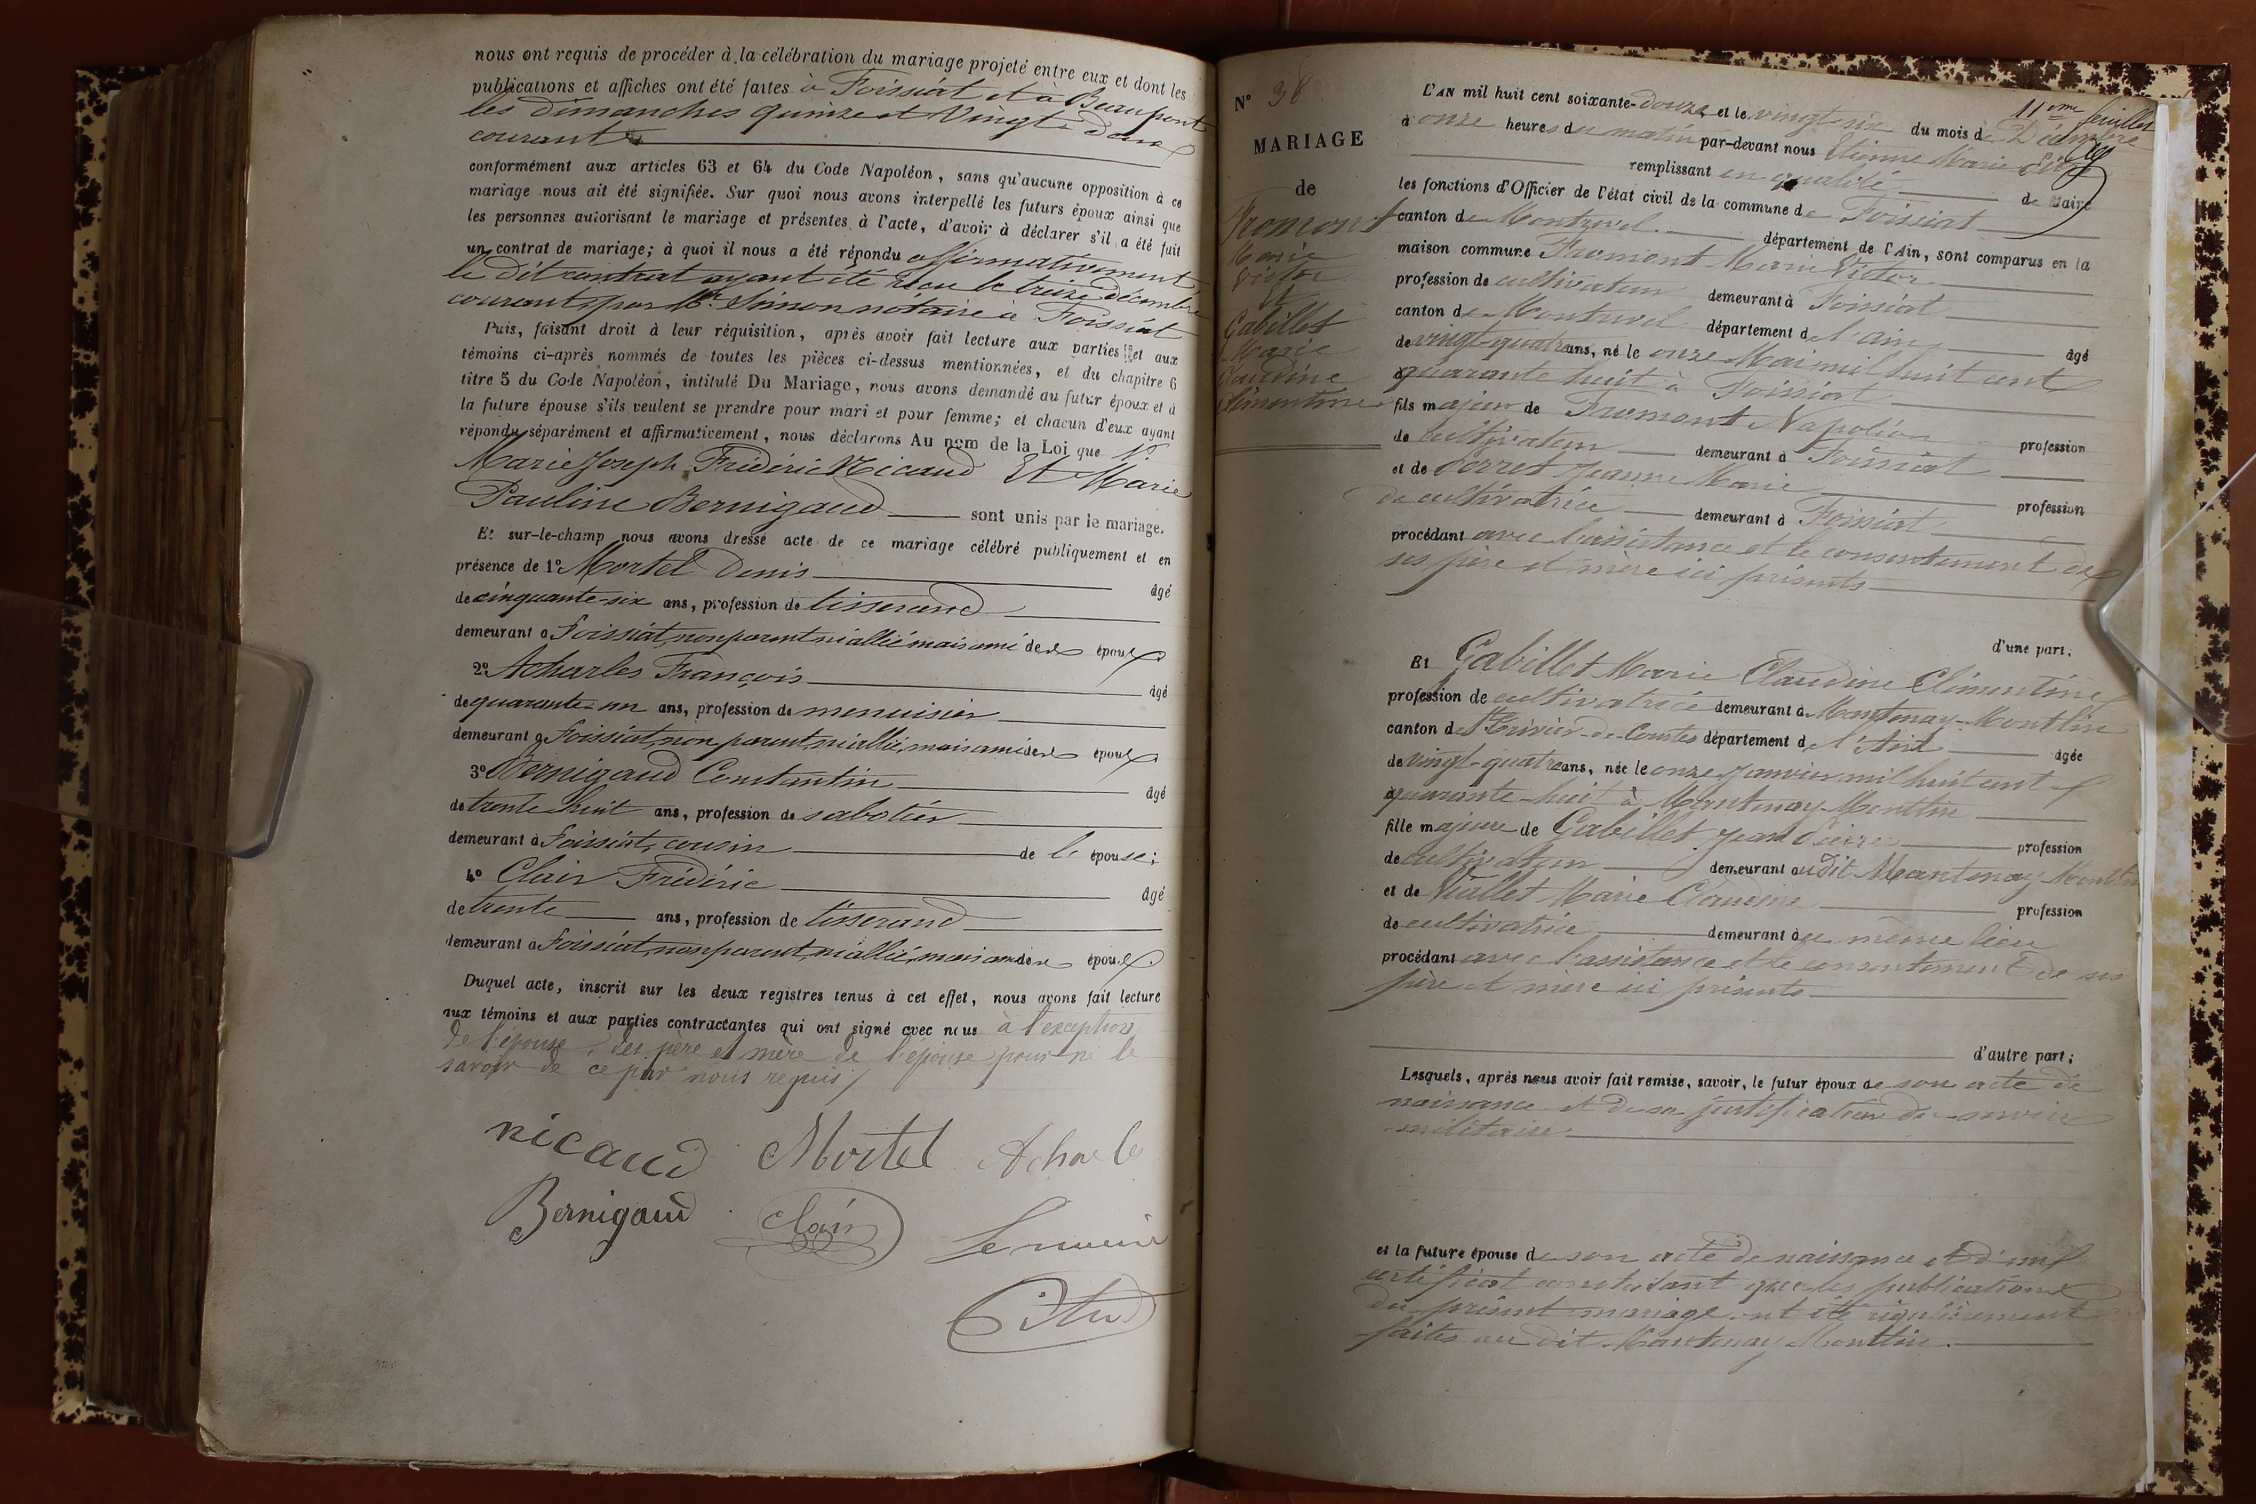 nous ont requis de procéder à la célébration du mariage projeté entre eux et dont les
publications et affiches ont été faites à Foissiat et à Beaupont
les dimanches quinze et Vingt-deux
courant
conformément aux articles 63 et 64 du Code Napoléon, sans qu'aucune opposition à ce
mariage nous ait été signifiée. Sur quoi nous avons interpellé les futurs époux ainsi que
les personnes autorisant le mariage et présentes à l'acte, d'avoir à déclarer s'il a été fait
un contrat de mariage; à quoi il nous a été répondu affirmativement
le dit contrat ayant été reçu le treize décembre
courant par Me Simon notaire à Foissiat
Puis, faisant droit à leur réquisition, après avoir fait lecture aux parties et aux
témoins ci-après nommés de toutes les pièces ci-dessus mentionnées, et du chapitre 6
titre 5 du Code Napoléon, intitulé Du Mariage, nous avons demandé au futur époux et à
la future épouse s'ils veulent se prendre pour mari et pour femme; et chacun d'eux ayant
répondu séparément et affirmativement, nous déclarons Au nom de la Loi que
Marie Joseph Frédéric Nicaud Et Marie
Pauline Bernigaud sont unis par le mariage.
Et sur-le-champ nous avons dressé acte de ce mariage célébré publiquement et en
présence de 1o Mortel Denis âgé
de cinquante-six ans, profession de tisserand
demeurant à Foissiat, non parent ni allié mais ami des époux
2o Acharles François âgé
de quarante-un ans, profession de menuisier
demeurant à Foissiat, non parent, ni allié, mais ami des époux
3o Bernigaud Constantin âgé
de trente huit ans, profession de sabotier
demeurant à Foissiat, cousin de l' épouse;
4o Clair Frédéric âgé
de trente ans, profession de tisserand
demeurant à Foissiat, non parent, ni allié, mais ami des époux
Duquel acte, inscrit sur les deux registres tenus à cet effet, nous avons fait lecture
aux témoins et aux parties contractantes qui ont signé avec nous à l'exception
de l'épouse, des père et mère de l'épouse pour ne le
savoir de ce par nous requis
nicaud Mortel Acharles
Bernigaud Clair Le maire
11eme feuillet
No 38
MARIAGE
de
Fromont
Marie
Victor
et
Gabillet
Marie
Claudine
Clémentine
L'AN mil huit cent soixante-douze et le vingt-six du mois de Décembre
à onze heures du matin par-devant nous Etienne Marie
remplissant en qualité de Maire
les fonctions d'Officier de l'état civil de la commune de Foissiat
canton de Montrevel département de l'Ain, sont comparus en la
maison commune Fromont Marie Victor
profession de cultivateur demeurant à Foissiat
canton de Montrevel département de l'ain âgé
de vingt-quatre ans, né le onze Mai mil huit cent
quarante huit à Foissiat
fils majeur de Fromont Napoléon profession
de cultivateur demeurant à Foissiat
et de Perret Jeanne Marie profession
de cultivatrice demeurant à Foissiat
procédant avec l'assistance et le consentement de
ses père et mère ici présents
d'une part;
Et Gabillet Marie Claudine Clémentine
profession de cultivatrice demeurant à Mantenay-Montlin
canton de St Trivier-de-Courtes département de l'Ain âgée
de vingt-quatre ans, née le onze Janvier mil huit cent
quarante-huit à Mantenay-Montlin
fille majeure de Gabillet Jean profession
de cultivateur demeurant audit Mantenay Montlin
et de Viallet Marie Claudine profession
de cultivatrice demeurant au même lieu
procédant avec l'assistance et le consentement de ses
père et mère ici présents
d'autre part;
Lesquels, après nous avoir fait remise, savoir, le futur époux de son acte de
naissance et de sa justification du service
militaire
et la future épouse de son acte de naissance et d'un
certificat constatant que les publications
du présent mariage ont été régulièrement
faites au dit Mantenay Montlin.